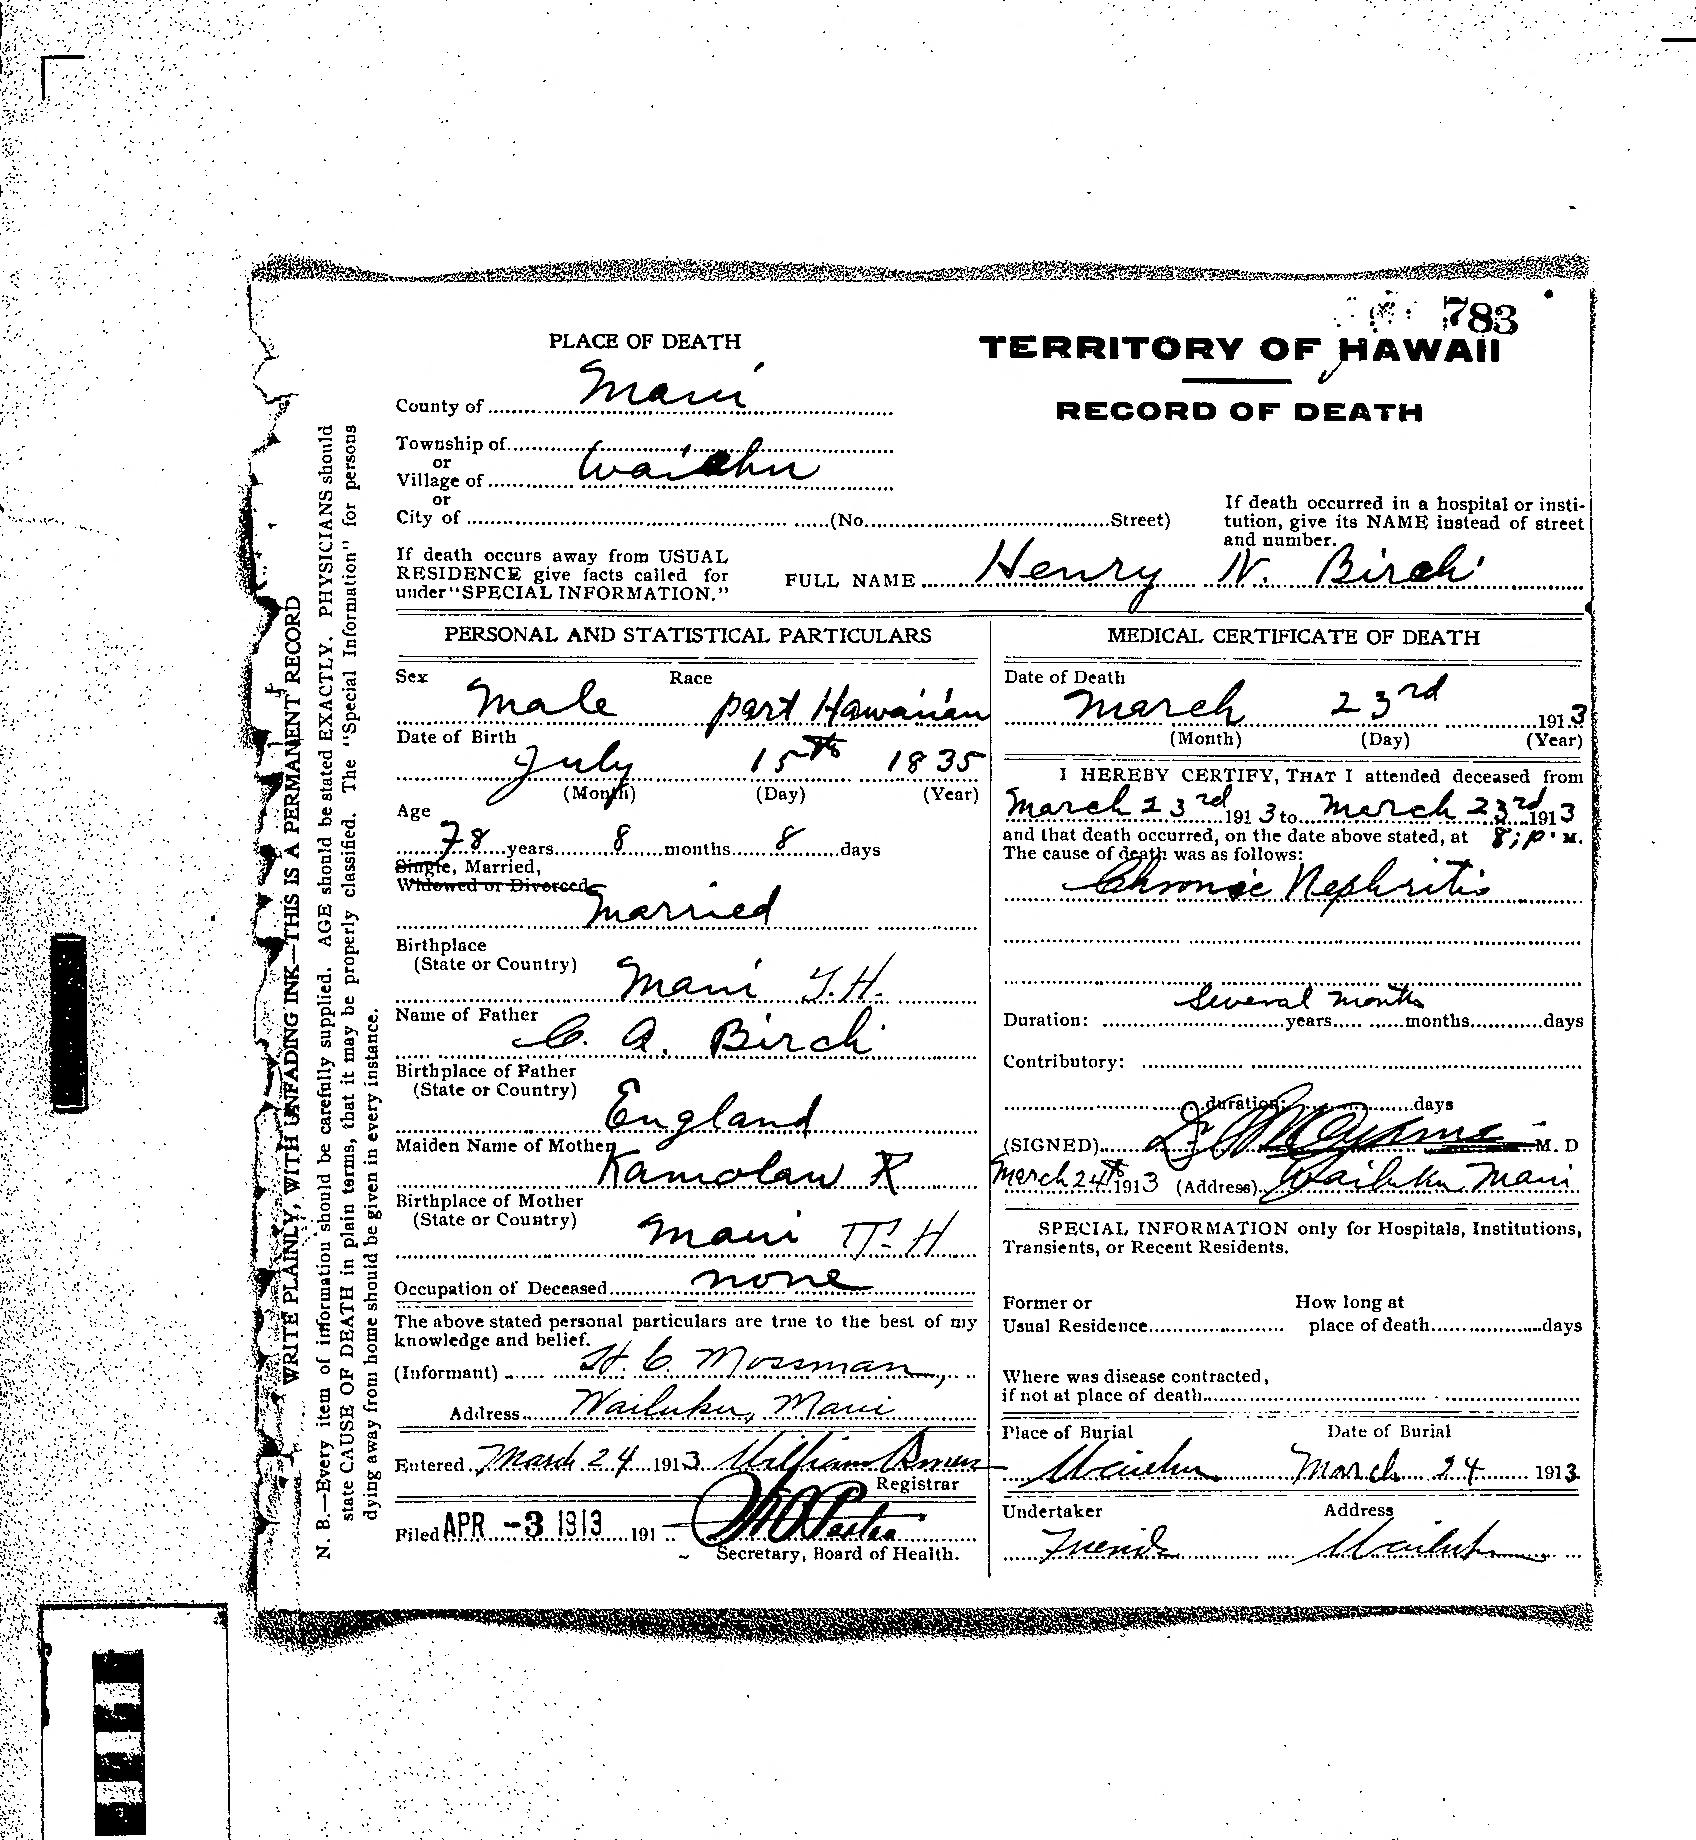 783
PLACE OF DEATH
TERRITORY OF HAWAII
RECORD OF DEATH
County of Maui
Township of
or
Village of Waiehu
or
City of (No. Street)
If death occurred in a hospital or insti-
tution, give its NAME instead of street
and number.
If death occurs away from USUAL
RESIDENCE give facts called for
under "SPECIAL INFORMATION."
FULL NAME Henry N. Birch
PERSONAL AND STATISTICAL PARTICULARS
Sex Race
Male part Hawaiian
Date of Birth
July 15th 1835
(Month) (Day) (Year)
Age
78 years 8 months 8 days
Single, Married,
Widowed or Divorced
Married
Birthplace
(State or Country) Maui T.H.
Name of Father
C. A. Birch
Birthplace of Father
(State or Country)
England
Maiden Name of Mother
Kamolau K
Birthplace of Mother
(State or Country)
Maui T. H
Occupation of Deceased none
The above stated personal particulars are true to the best of my
knowledge and belief.
(Informant) H. C. Mossman,
Address Wailuku, Maui
Entered March 24 1913 William
Registrar
Filed APR -3 1913 191
Secretary, Board of Health.
MEDICAL CERTIFICATE OF DEATH
Date of Death
March 23rd 1913
(Month) (Day) (Year)
I HEREBY CERTIFY, THAT I attended deceased from
March 23rd 1913 to March 23rd 1913
and that death occurred, on the date above stated, at 8; P. M.
The cause of death was as follows:
Chronic Nephritis
several months
Duration: years months days
Contributory:
duration: days
(SIGNED) M. D
March 24th 1913 (Address) Wailuku Maui
SPECIAL INFORMATION only for Hospitals, Institutions,
Transients, or Recent Residents.
Former or How long at
Usual Residence place of death days
Where was disease contracted,
if not at place of death
Place of Burial Date of Burial
Waiehu March 24 1913
Undertaker Address
Friends Wailuku
WRITE PLAINLY, WITH UNFADING INK—THIS IS A PERMANENT RECORD
N. B.—Every item of information should be carefully supplied. AGE should be stated EXACTLY. PHYSICIANS should
state CAUSE OF DEATH in plain terms, that it may be properly classified. The "Special Information" for persons
dying away from home should be given in every instance.